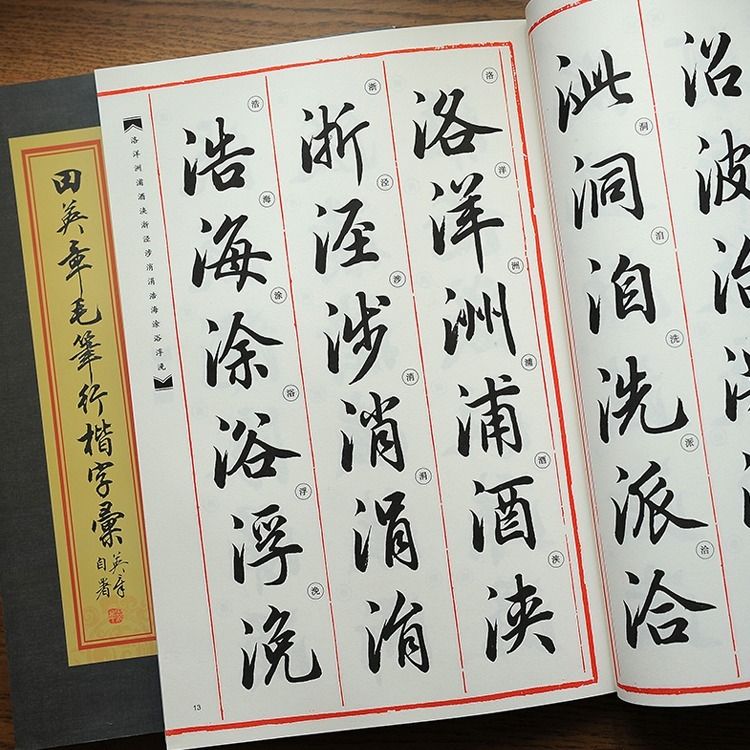 田英章毛筆行楷字彙
英章
自署
沿波治
泚洞洎洗派洽
洞洎洗派洽
洛洋洲浦酒浃
洛洋洲浦酒浃
浙泾涉消涓涓
浙泾涉消涓
浩海涂浴浮浼
浩海涂浴浮浼
洛洋洲浦酒浃浙泾涉消涓浩海涂浴浮浼
13